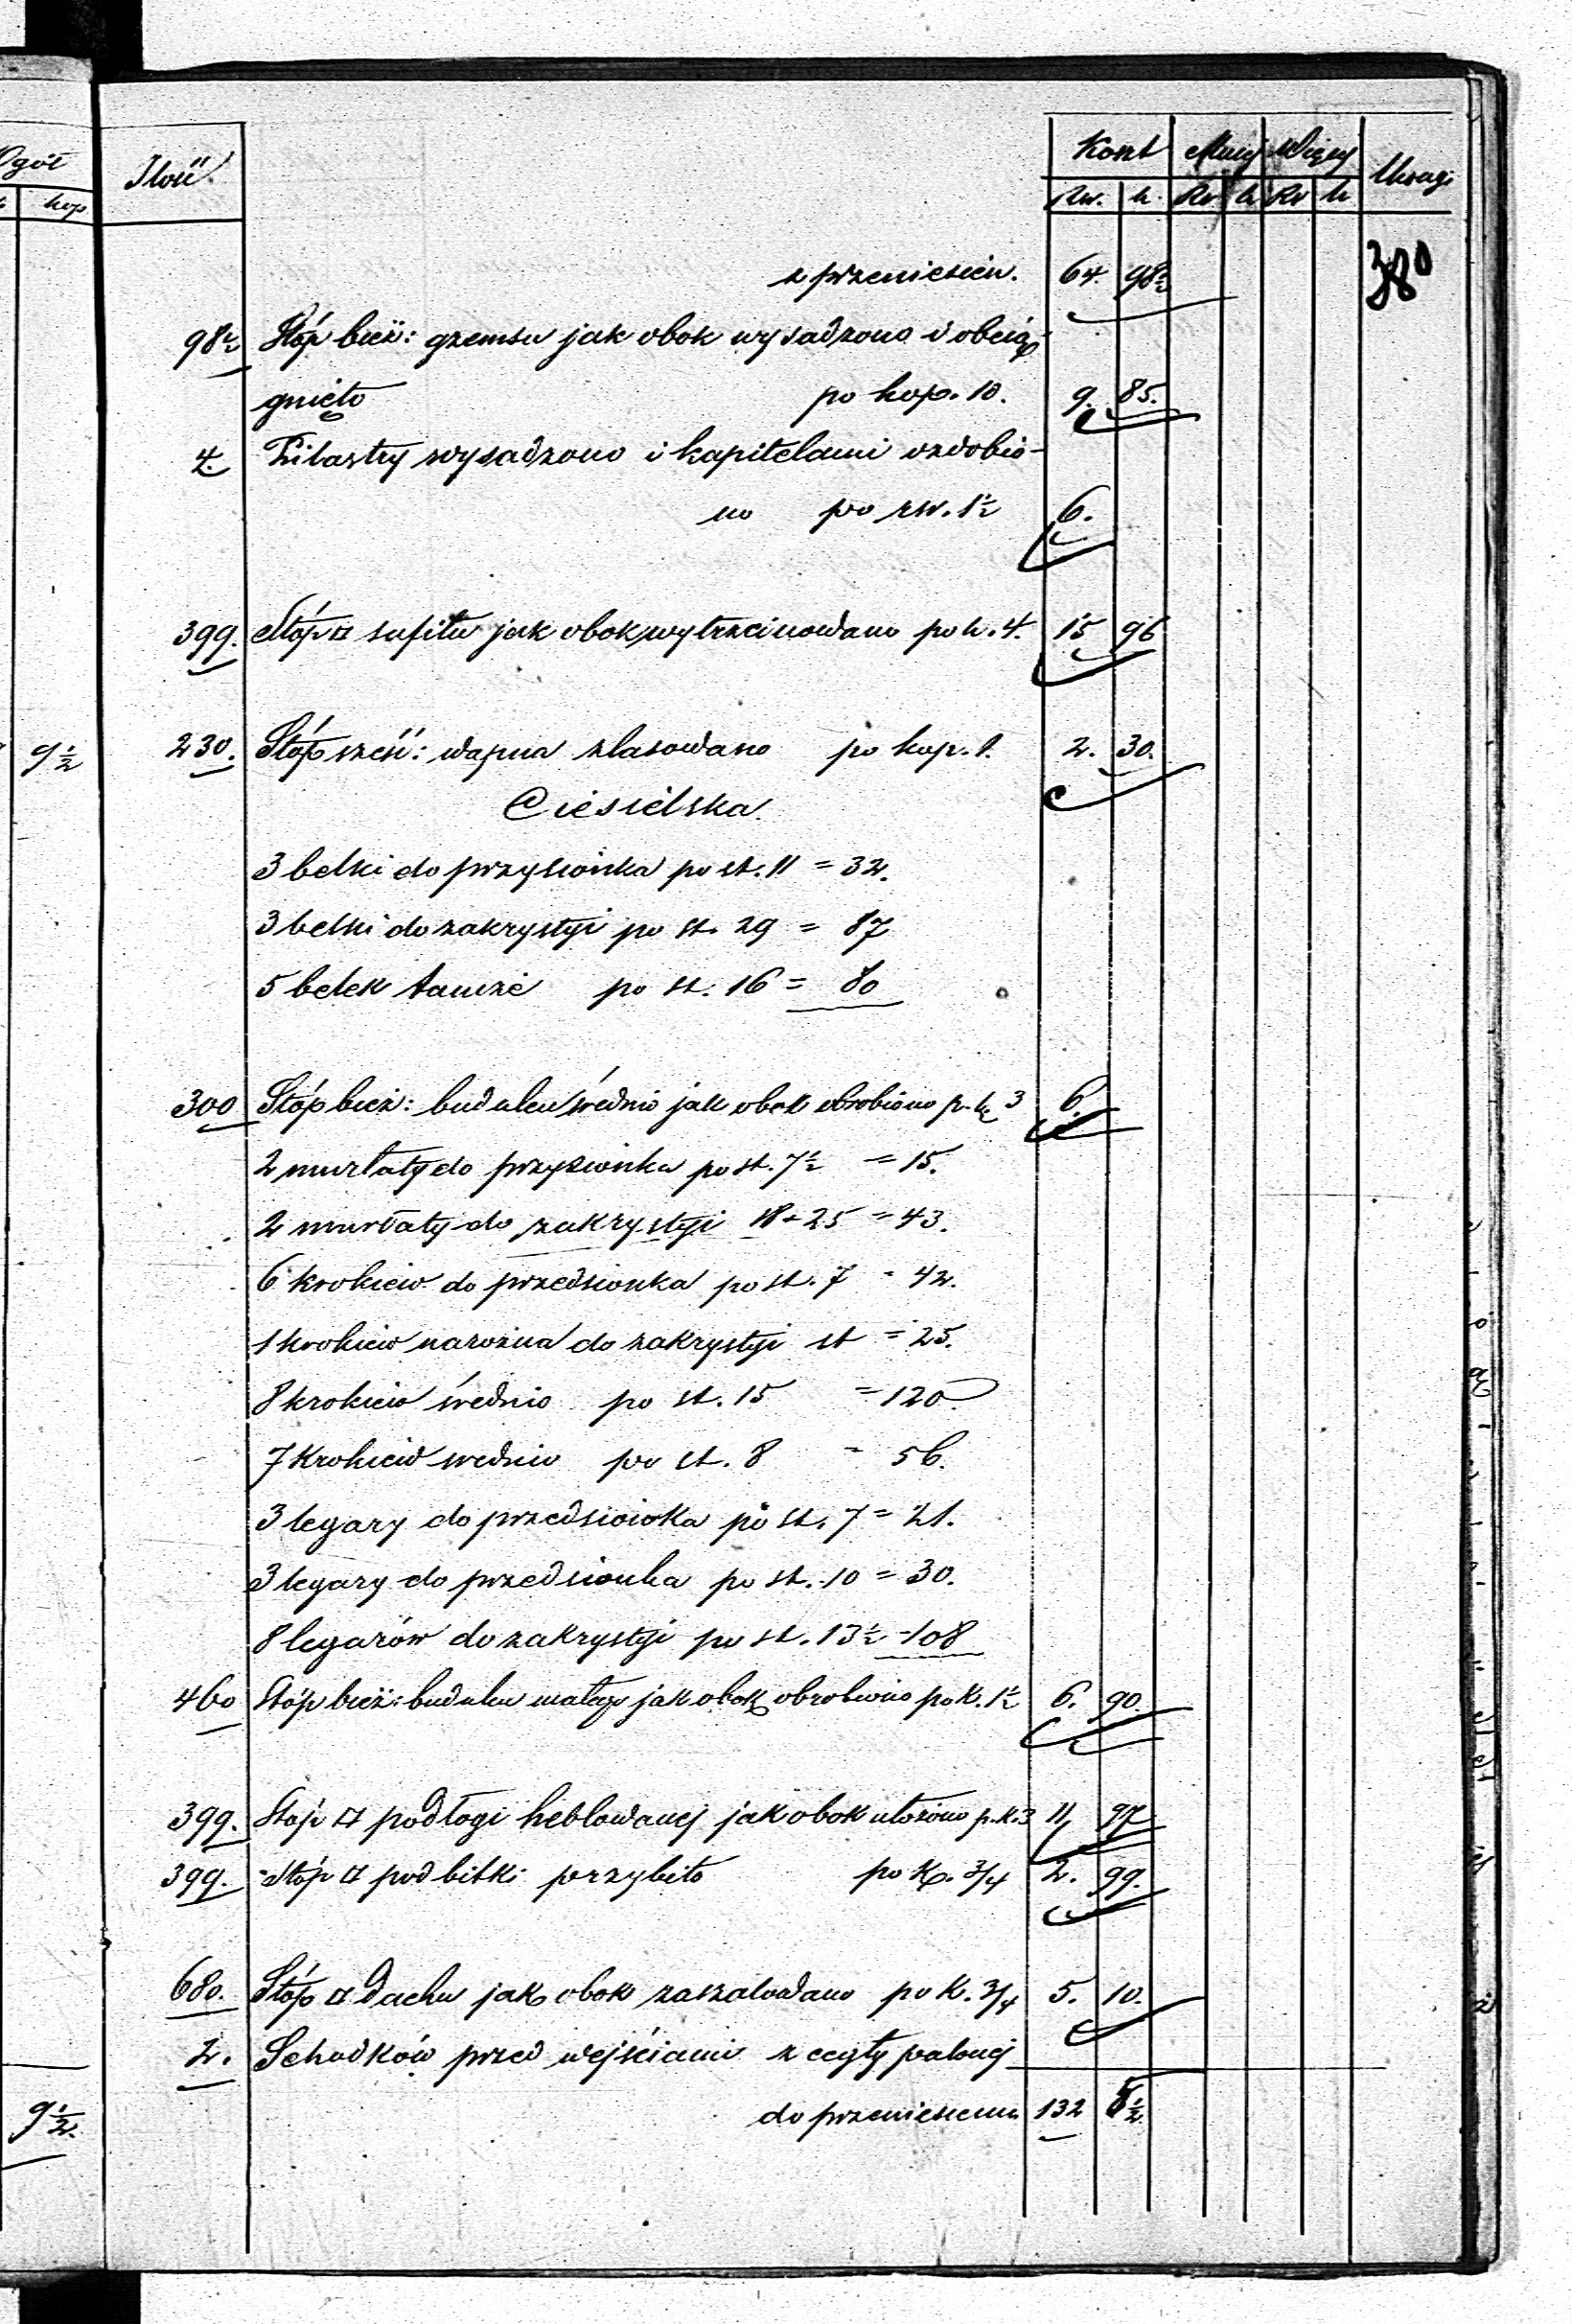 Ogół
kop
9 1/2
9 1/2.
Ilość
Koszt Mniej Więcej Uwagi
Rs. k. Rs k Rs k
380
z przeniesien. 64. 98 1/2
98 1/2 Stóp bież: gzemsu jak obok wysadzono i obcią-
gnięto po kop. 10. 9. 85.
4. Pilastry wysadzono i kapitelami ozdobio-
no po rs. 1 1/2 6.
399. Stóp □ sufitu jak obok wytrzcinowano po k. 4. 15 96
230. Stóp sześć: wapna zlasowano po kop. 1. 2. 30.
Ciesielska
3 belki do przysionka po st. 11 = 32.
3 belki do zakrystyi po st. 29 = 87
5 belek tamże po st. 16 = 80
300 Stóp bież: budulcu średnio jak obok obrobiono p. k. 3 6.
2 murłaty do przysionka po st. 7 1/2 = 15.
2 murłaty do zakrystyi 18 + 25 = 43.
6 krokiew do przedsionka po st. 7 = 42.
1 krokiew narożna do zakrystyi st = 25.
8 krokiew średnio po st. 15 = 120
7 Krokiew srednio po st. 8 = 56.
3 legary do przedsionka po st. 7 = 21.
3 legary do przedsionka po st. 10 = 30.
8 legarów do zakrystyi po st. 13 1/2 = 108
460 Stóp bież: budulcu małego jak obok obrobiono po k. 1 1/2 6. 90.
399. Stóp □ podłogi heblowanej jak obok ułożono p. k. 3 11, 97
399. Stóp □ podbitki przybito po k. 3/4 2. 99.
680. Stóp □ Dachu jak obok zaszalowano po k. 3/4 5. 10.
2. Schodków przed wejściami z cegły palonej
do przeniesienia 132 5 1/2